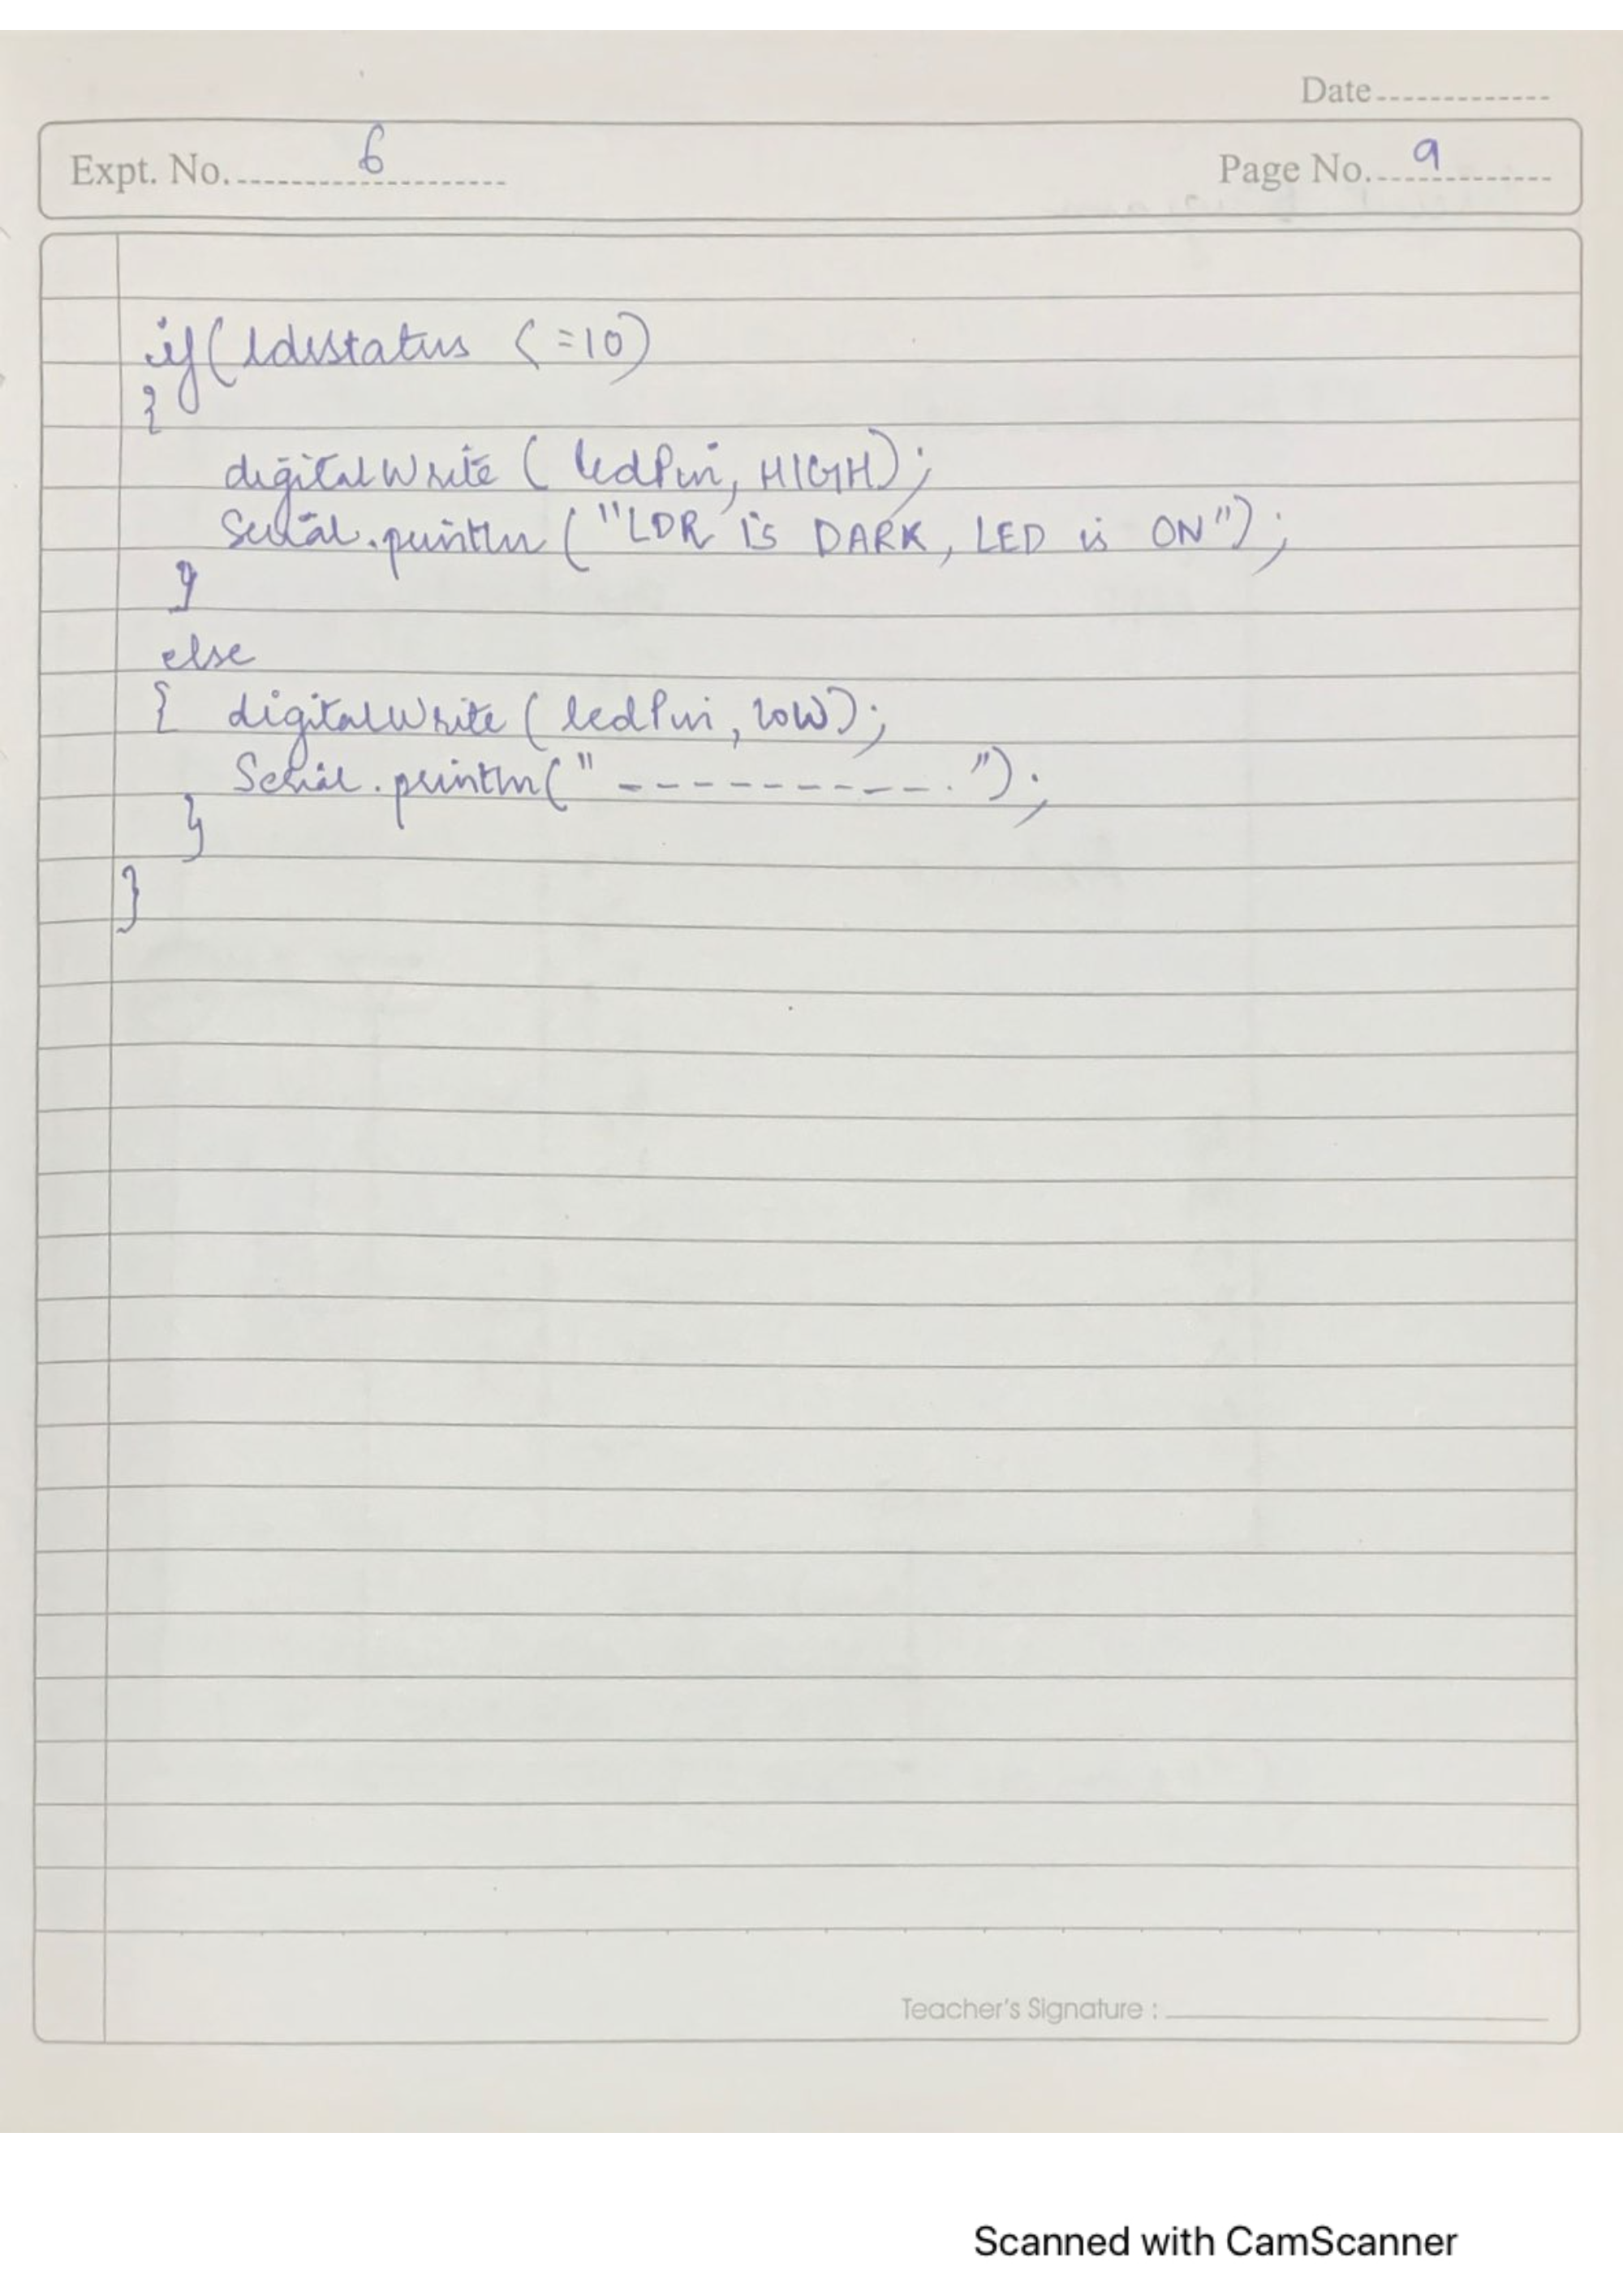 Date
Expt. No. 6
Page No. 9
if(ldrstatus <=10)
{
digitalWrite ( ledPin, HIGH);
Serial.println ("LDR is DARK, LED is ON");
}
else
{ digitalWrite ( ledPin, LOW);
Serial.println(" ---------- ");
}
}
Teacher's Signature :
Scanned with CamScanner